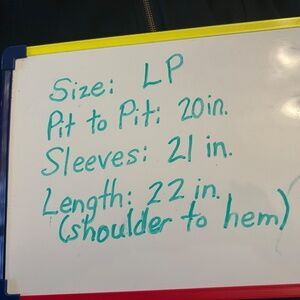 Size: LP
Pit to Pit: 20in.
Sleeves: 21 in.
Length: 22 in.
(shoulder to hem)